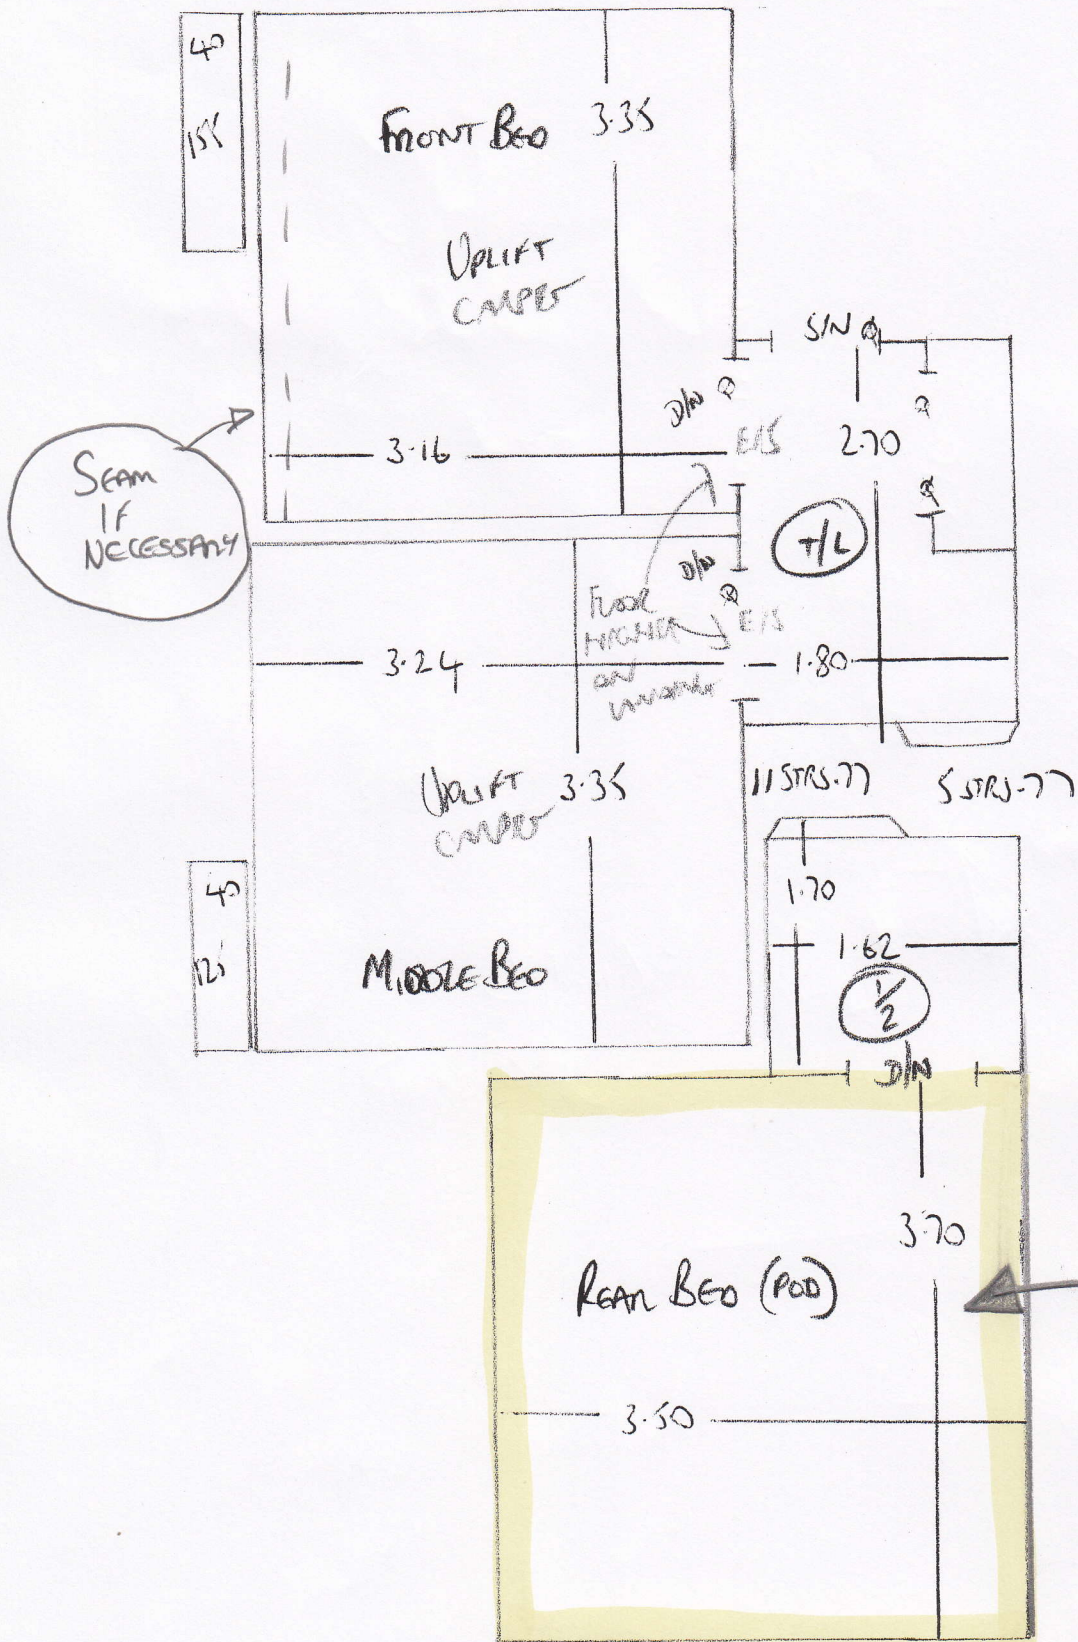 40
155
FRONT BED
3.35
UPLIFT
CARPET
S/N
D/N
3.16
E/S
2.70
SEAM
IF
NECESSARY
T/L
D/N
FLOOR
HIGHER
ON
LANDING
E/S
3.24
1.80
UPLIFT
CARPET
3.35
11 STRS.77
5 STRS.77
40
125
1.70
1.62
MIDDLE BED
1/2
D/N
3.70
REAR BED (POD)
3.50